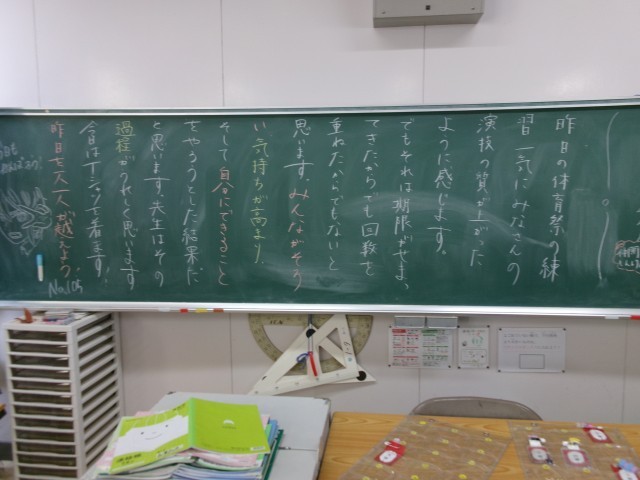 昨日の体育祭の練
習一気にみなさんの
演技の質が上がった
ように感じます。
でもそれは期限がせま
てきたからでも回数を
重ねたからでもないと
思います。みんながそろ
い気持ちが高まり、
そして自分にできること
をやろうとした結果だ
と思います。先生はその
過程がうれしく思います
今日はTシャツを着ます!
昨日を一人一人が越えよう!
No.105